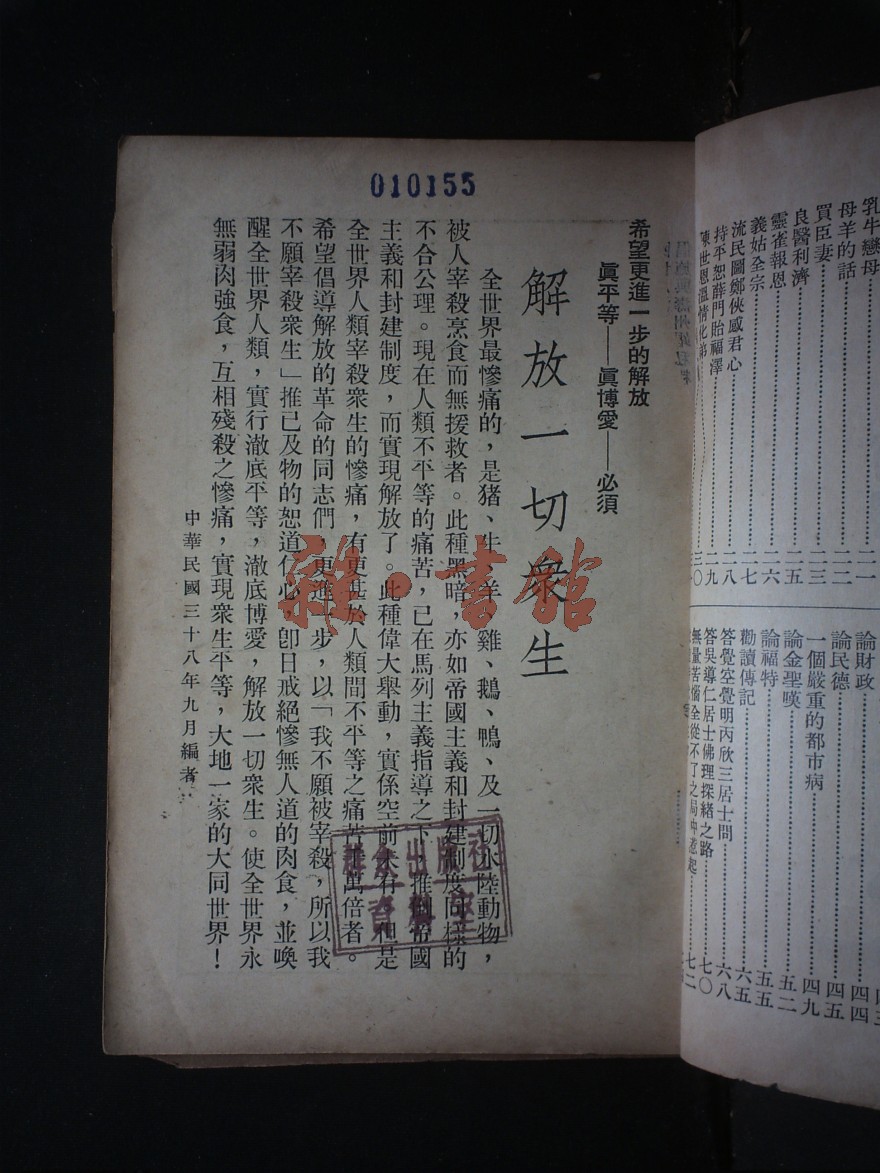 010155
希望更進一步的解放
眞平等——眞博愛——必須
解放一切衆生
全世界最慘痛的，是猪、牛、羊、雞、鵝、鴨、及一切水陸動物，
被人宰殺烹食而無援救者。此種黑暗，亦如帝國主義和封建制度同樣的
不合公理。現在人類不平等的痛苦，已在馬列主義指導之下，推倒帝國
主義和封建制度，而實現解放了。此種偉大舉動，實係空前未有。但是
全世界人類宰殺衆生的慘痛，有更甚於人類間不平等之痛苦千萬倍者。
希望倡導解放的革命的同志們，更進一步，以「我不願被宰殺，所以我
不願宰殺衆生」推已及物的恕道仁心，卽日戒絕慘無人道的肉食，並喚
醒全世界人類，實行澈底平等，澈底博愛，解放一切衆生。使全世界永
無弱肉強食，互相殘殺之慘痛，實現衆生平等，大地一家的大同世界！
中華民國三十八年九月編者
雜·書館
羣衆出版社
乳牛戀母……二一
母羊的話……二二
買臣妻……二三
良醫利濟……二五
靈雀報恩……二六
義姑全宗……二七
流民圖鄭俠感君心……二八
持平恕薛門貽福澤……二九
陳世恩溫情化弟……三〇
論財政……四四
論民德……四五
一個嚴重的都市病……四九
論金聖嘆……五二
論福特……五五
勸讀傳記……六五
答覺空覺明丙欣三居士問……六八
答吳導仁居士佛理探緒之路……七〇
無量苦惱全從不了之局中惹起……七二